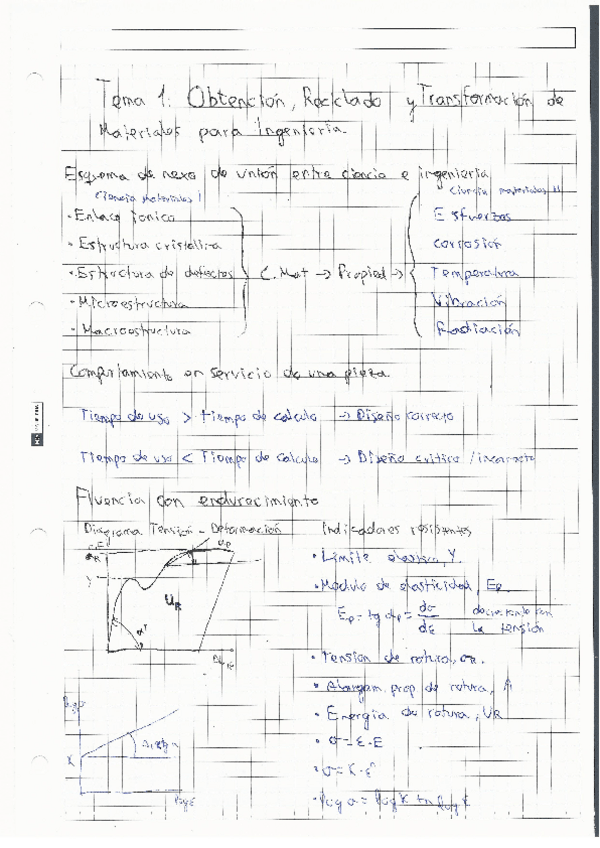 Tema 1: Obtención, Reciclado y Transformación de
Materiales para Ingeniería.
Esquema de nexo de unión entre ciencia e ingeniería
Ciencia materiales I
Ciencia materiales II
· Enlace iónico
· Estructura cristalina
· Estructura de defectos
· Microestructura
· Macroestructura
C. Mat → Propied →
Esfuerzos
corrosión
Temperatura
Vibración
Radiación
Comportamiento en servicio de una pieza
Tiempo de uso > tiempo de calculo → Diseño correcto
Tiempo de uso < Tiempo de calculo → Diseño critico / incorrecto
Fluencia con endurecimiento
Diagrama Tensión - Deformación
Y
UR
Indicadores resistentes
· Limite elastico, Y.
· Modulo de elasticidad, Ep.
Ep = tg αp = dσ/dε decreciendo con
la tensión
· Tension de rotura, σR.
· Alargam. prop de rotura, A
· Energia de rotura, UR
· σ = ε · E
· σ = K · εⁿ
· log σ = log K + n log ε
K
log ε